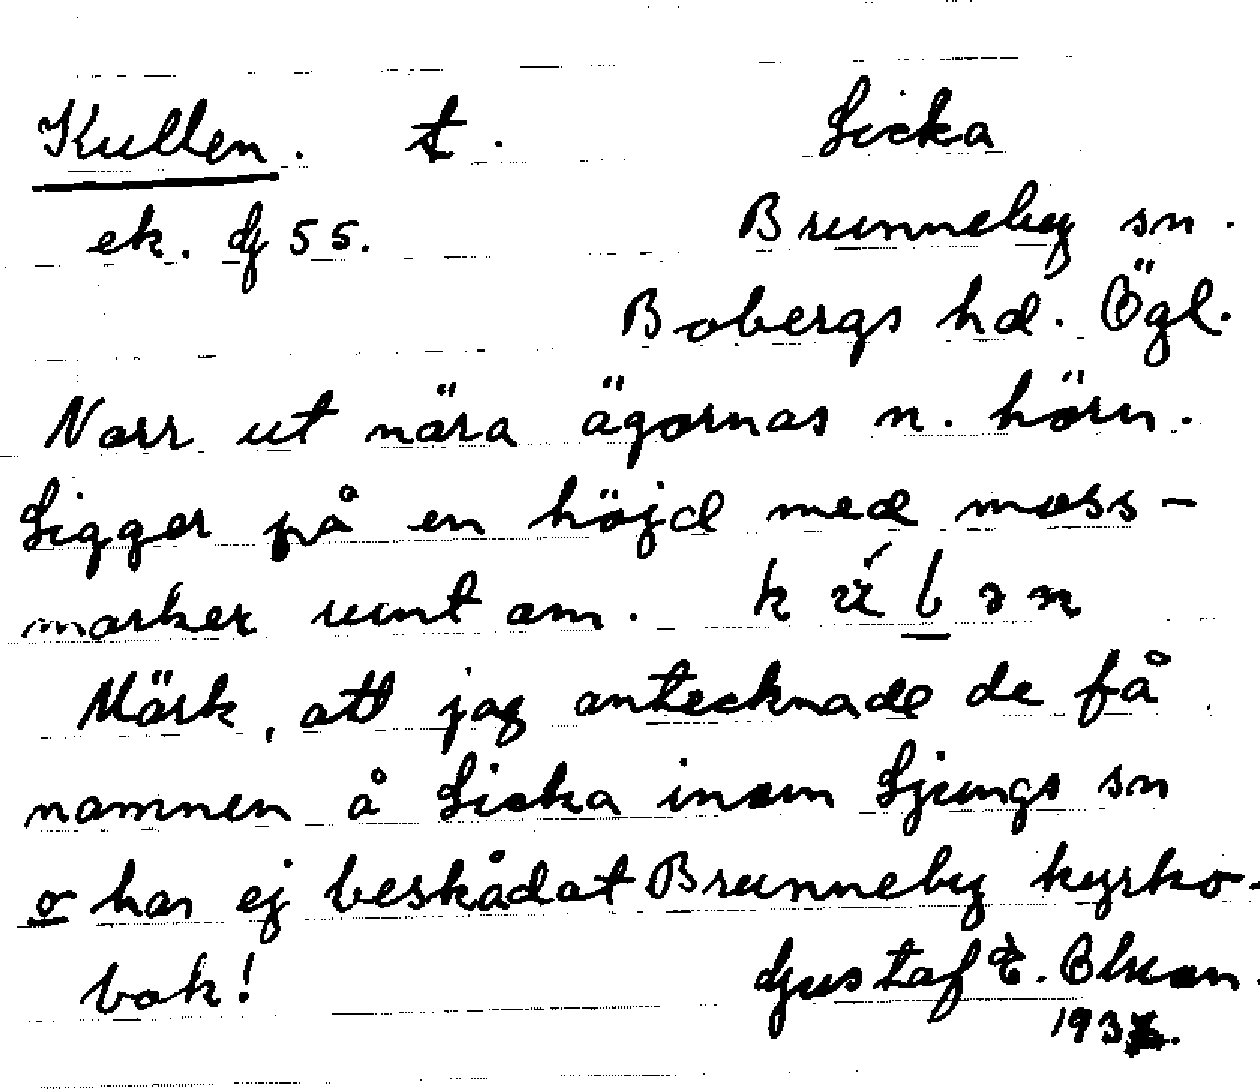 Kullen. t. Licka
ek. dj 55. Brunneby sn.
Bobergs hd. Ögl.
Norr ut nära ägornas n. hörn.
Ligger på en höjd med moss-
marker runt om.
Märk, att jag antecknade de få
namnen å Licka inom Ljungs sn
o har ej beskådat Brunneby kyrko-
bok! Gustaf E.